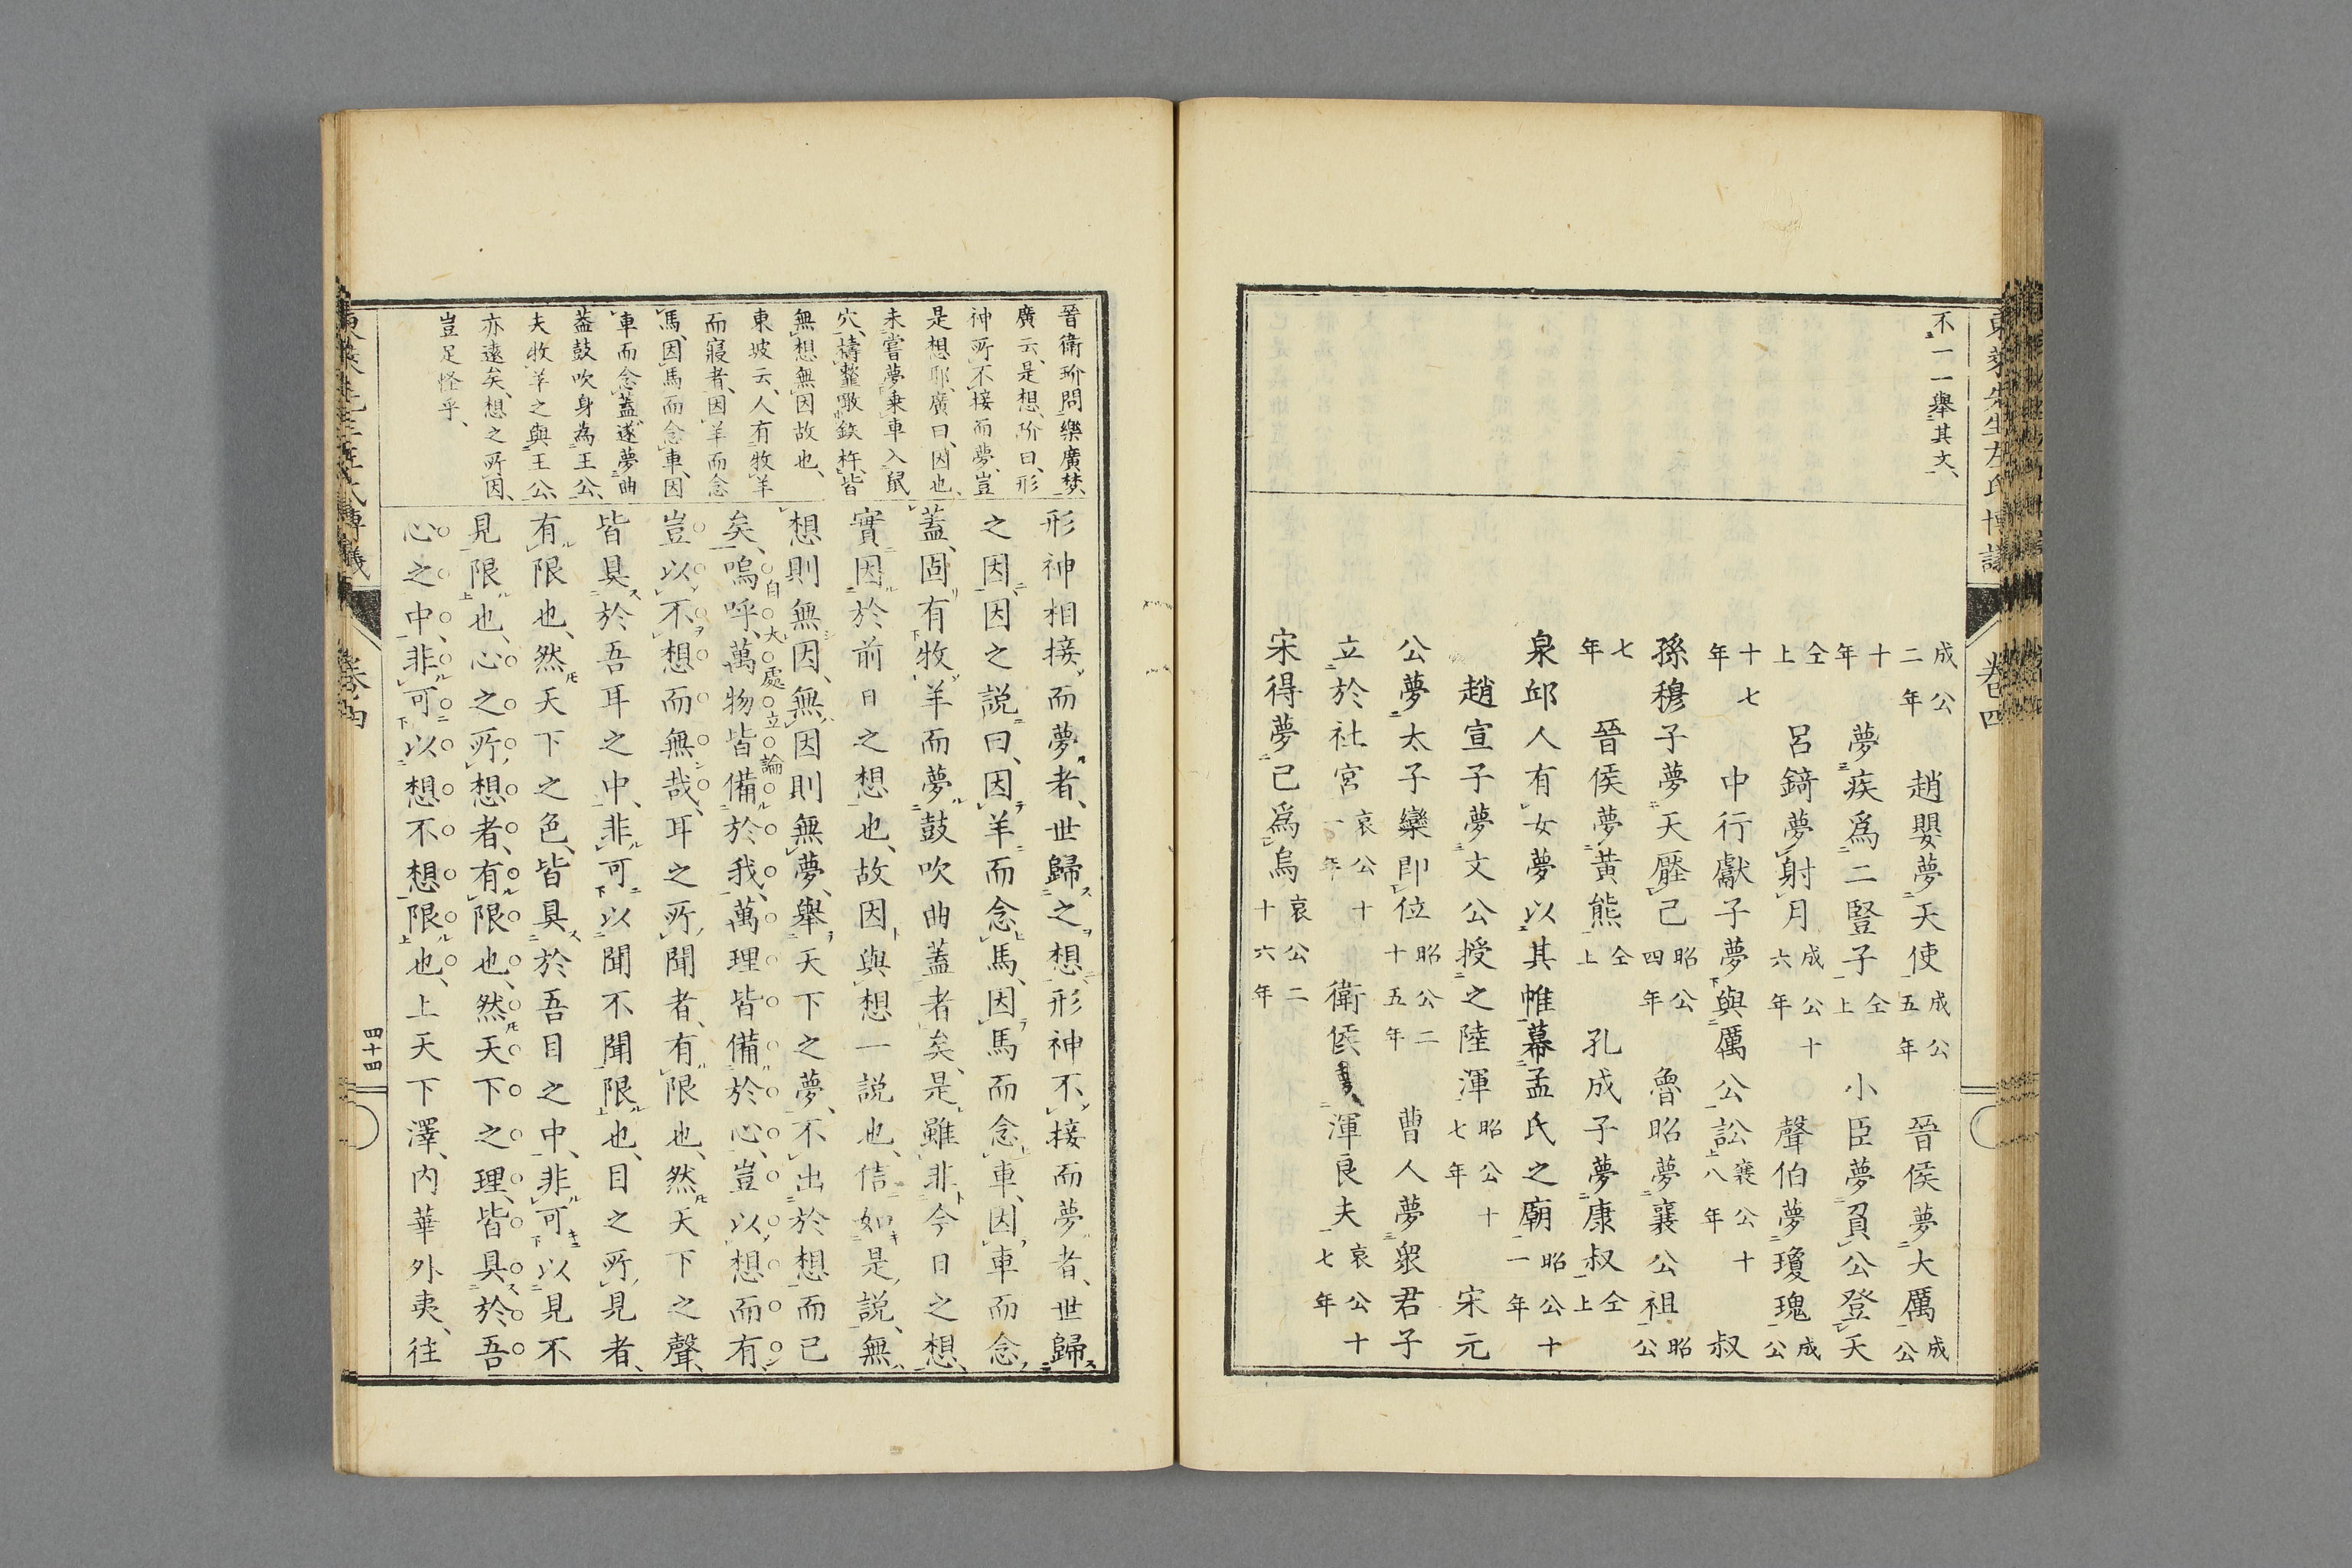 不一一舉其文、
成公二年 趙嬰夢天使成公五年 晉侯夢大厲成公
十年 夢疾爲二豎子仝上 小臣夢負公登天
仝上 呂錡夢射月成公十六年 聲伯夢瓊瑰成公
十七年 中行獻子夢與厲公訟襄公十八年 叔
孫穆子夢天壓己昭公四年 魯昭夢襄公祖昭公
七年 晉侯夢黃熊仝上 孔成子夢康叔仝上
泉邱人有女夢以其帷幕孟氏之廟昭公十一年
趙宣子夢文公授之陸渾昭公十七年 宋元
公夢太子欒即位昭公二十五年 曹人夢眾君子
立於社宮哀公十一年 衛侯夢渾良夫哀公十七年
宋得夢己爲烏哀公二十六年
東萊先生左氏博議 卷四
晉衛玠問樂廣梦、
廣云、是想、玠曰、形
神所不接而夢、豈
是想耶、廣曰、因也、
未嘗夢乗車入鼠
穴、擣韲噉鉄杵、皆
無想無因故也、
東坡云、人有牧羊
而寢者、因羊而念
馬、因馬而念車、因
車而念蓋、遂夢曲
蓋鼓吹身為王公、
夫牧羊之與王公、
亦遠矣、想之所因、
豈足怪乎、
形神相接而夢者、世歸之想、形神不接而夢者、世歸
之因、因之説曰、因羊而念馬、因馬而念車、因車而念
蓋、固有牧羊而夢鼓吹曲蓋者矣、是雖非今日之想、
實因於前日之想也、故因與想一説也、信如是説、無
想則無因、無因則無夢、舉天下之夢、不出於想而已
矣、嗚呼、萬物皆備於我、萬理皆備於心、豈以想而有、
自大處立論
豈以不想而無哉、耳之所聞者、有限也、然天下之聲、
皆具於吾耳之中、非可以聞不聞限也、目之所見者、
有限也、然天下之色、皆具於吾目之中、非可以見不
見限也、心之所想者、有限也、然天下之理、皆具於吾
心之中、非可以想不想限也、上天下澤、内華外夷、往
卷四
四十四